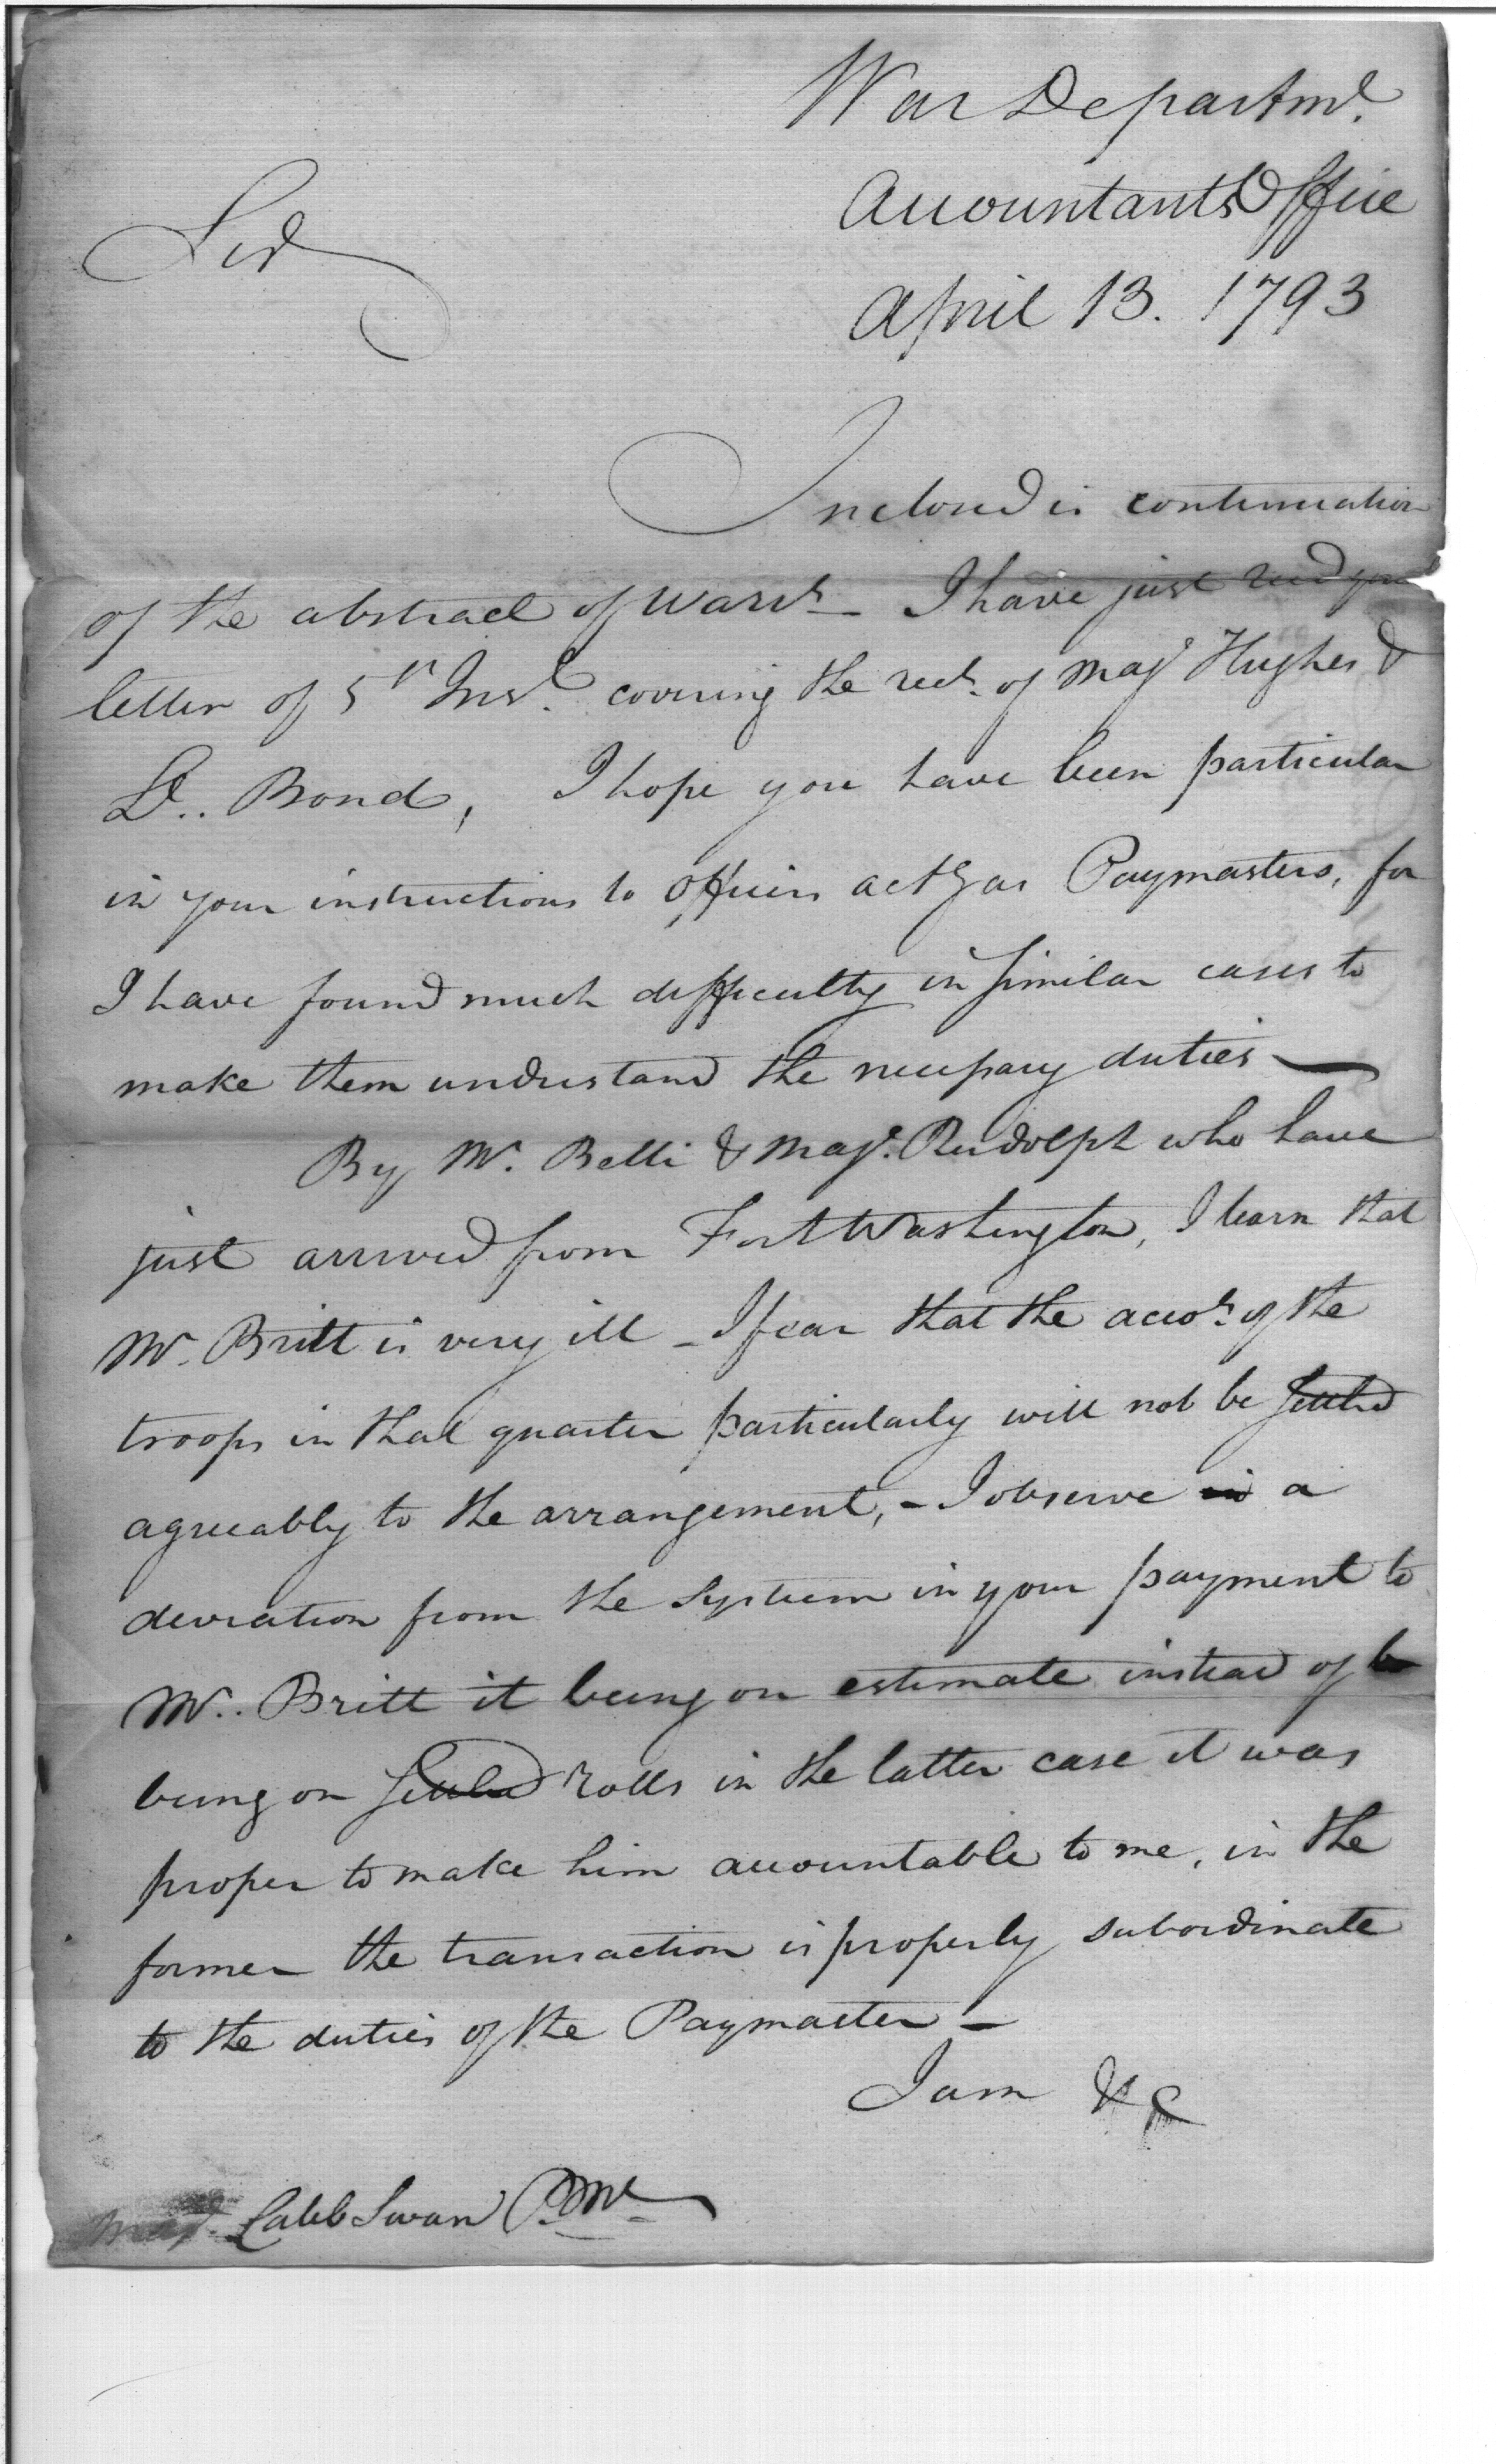 War Departmt.
Accountants Office
Sir
April 13. 1793
Inclosed is continuation
of the abstract of Warrts _ I have just recd your
letter of 5th Inst. covering the rects. of Majr Hughes &
Lt.. Bond, I hope you have been particular
in your instructions to officers actg as Paymasters, for
I have found much difficulty in similar cases to
make them understand the necessary duties —
By Mr. Belli & Majr. Rudolph who have
just arrived from Fort Washington, I learn that
Mr. Britt is very ill _ I fear that the accots. of the
troops in that quarter particularly will not be settled
agreeably to the arrangement, - I observe in a
deviation from the System in your payment to
Mr.. Britt it being on estimate instead of be
being on settled rolls in the latter case it was
proper to make him accountable to me, in the
former the transaction is properly subordinate
to the duties of the Paymaster _
I am &c
Majr. Caleb Swan P.Mr